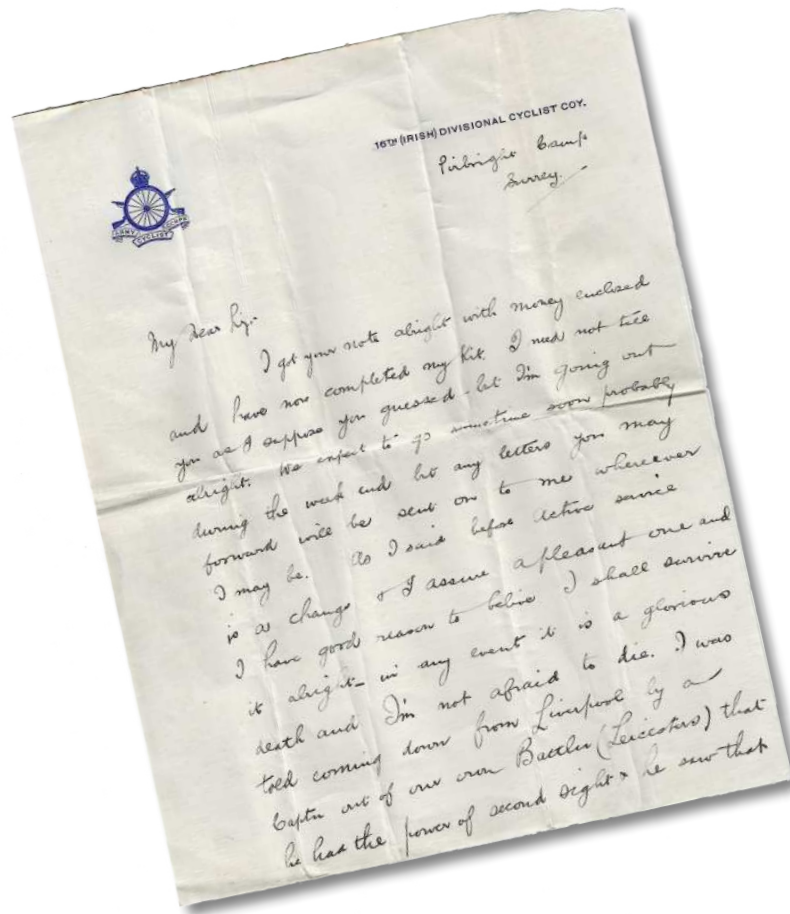 16TH (IRISH) DIVISIONAL CYCLIST COY.
Pirbright Camp
Surrey.
ARMY CYCLIST CORPS
My Dear
I got your note alright with money enclosed
and have now completed my kit. I need not tell
you as I suppose you guessed - but I'm going out
alright. We expect to go sometime soon probably
during the week end but any letters you may
forward will be sent on to me whereever
I may be. As I said before active service
is a change & I assure a pleasant one and
I have good reason to belive I shall survive
it alright - in any event it is a glorious
death and I'm not afraid to die. I was
told coming down from Liverpool by a
Captn out of our own (Leicesters) that
he had the power of second sight & he saw that